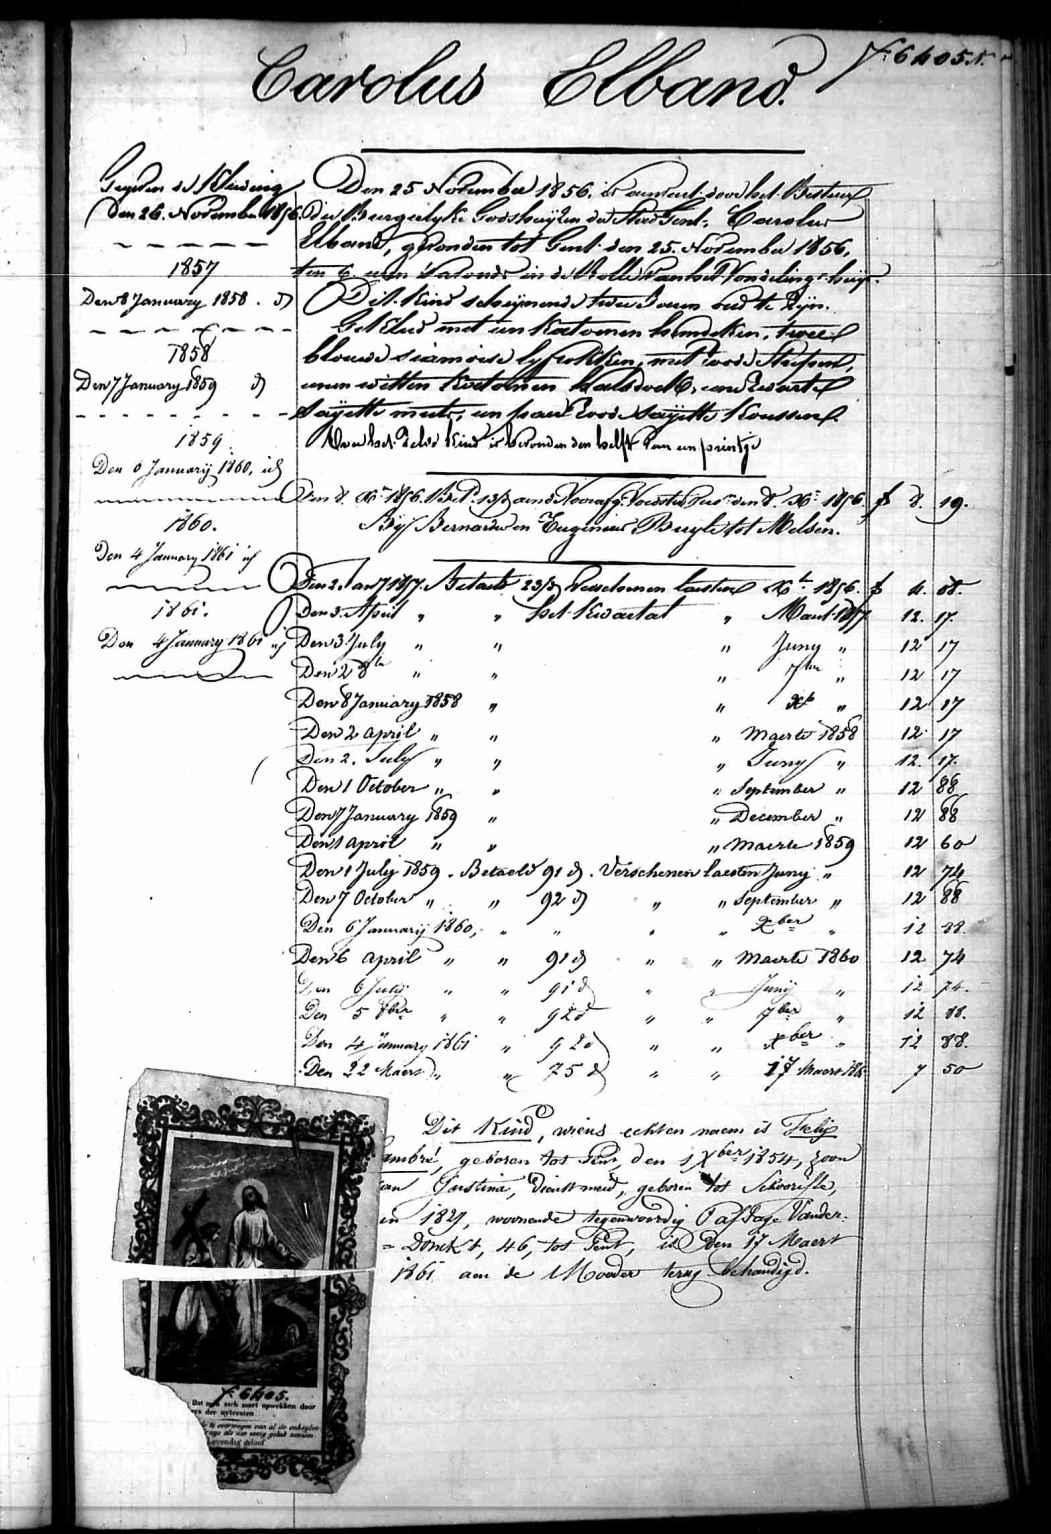 Carolus Elband.
F. 6405.
Gegeven de Kleeding
den 26. November 1856.
1857
Den 8 January 1858. d
1858
Den 7 January 1859 d
1859
Den 6 January 1860, id
1860.
Den 4 January 1861 id
1861.
Den 4 January 1861 id
Den 25 November 1856. is door het Bestuur
der Burgerlyke Godshuyzen der Stad Gent, Carolus
Elband, gevonden tot Gent den 25. November 1856,
ten 6 uren 's avonds in de Rolle van het Vondelinghuys.
Dit kind schynende twee Jaren oud te zyn.
Gekleed met een katoenen hemdeken, twee
blouwe siamoise lyfrokken, met roode streepen,
eenen witten katoenen halsdoek, eene zwarte
sayette muts, een paar roode sayette koussens.
Over het zelve kind is bevonden den helft van een printje
Den 8. Xr 1856. 8. Xr 1856. f 8. 19.
By Bernardus en Eugenie Buyle tot Melsen.
Den 2 Jany 1857. Betaelt 23/3 Verschenen laesten Xb 1856. f 4. 08.
Den 3. April " " het kwartal " Maart 1857 12. 17.
Den 3 July " " " Juny " 12 17
Den 2 8br " " " 7ber " 12 17
Den 8 January 1858 " " Xb " 12 17
Den 2 april " " " Maerte 1858 12 17
Den 2. July " " " Juny " 12. 17.
Den 1 October " " " September " 12 88
Den 7 January 1859 " " December " 12 88
Den 1 april " " " Maerte 1859 12 60
Den 1 July 1859. Betaeld 91 d. Verschenen laesten Juny " 12 74
Den 7 October " " 92 d " " September " 12 88
Den 6 January 1860, " " " " Xber " 12 88.
Den 6 april " " 91 d " " Maerte 1860 12 74
Den 6 July " " 91 d " " Juny " 12 74.
Den 5 8ber " " 92 d " " 7ber " 12 88.
Den 4 January 1861 " 92 d " " Xber " 12 88.
Den 22 Maert " " 75 d " " 17 Maert 186 7 50
Dit Kind, wiens echten naem is Felix
ambré, geboren tot Gent, den 1 Xber 1854, zoon
van Justina, Dienstmeid, geboren tot Schoorisse,
in 1827, woonende tegenwoordig Passage Vander-
= Donckt, 46, tot Gent, is den 17 Maert
1861 aen de Moeder terug behandigd.
F. 6405.
Dat men zich moet opwekken door
der uytersten
te overwegen van al de
als die eeuwig
levendig geloof